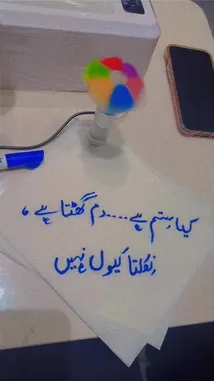 کیا ستم ہے....دم گھٹتا ہے ،
نکلتا کیوں نہیں